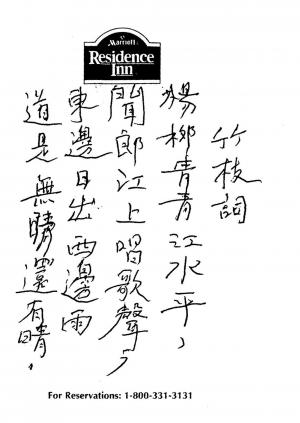 Marriott
Residence
Inn
竹枝詞
楊柳青青江水平，
聞郎江上唱歌聲，
東邊日出西邊雨
道是無晴還有晴．
For Reservations: 1-800-331-3131